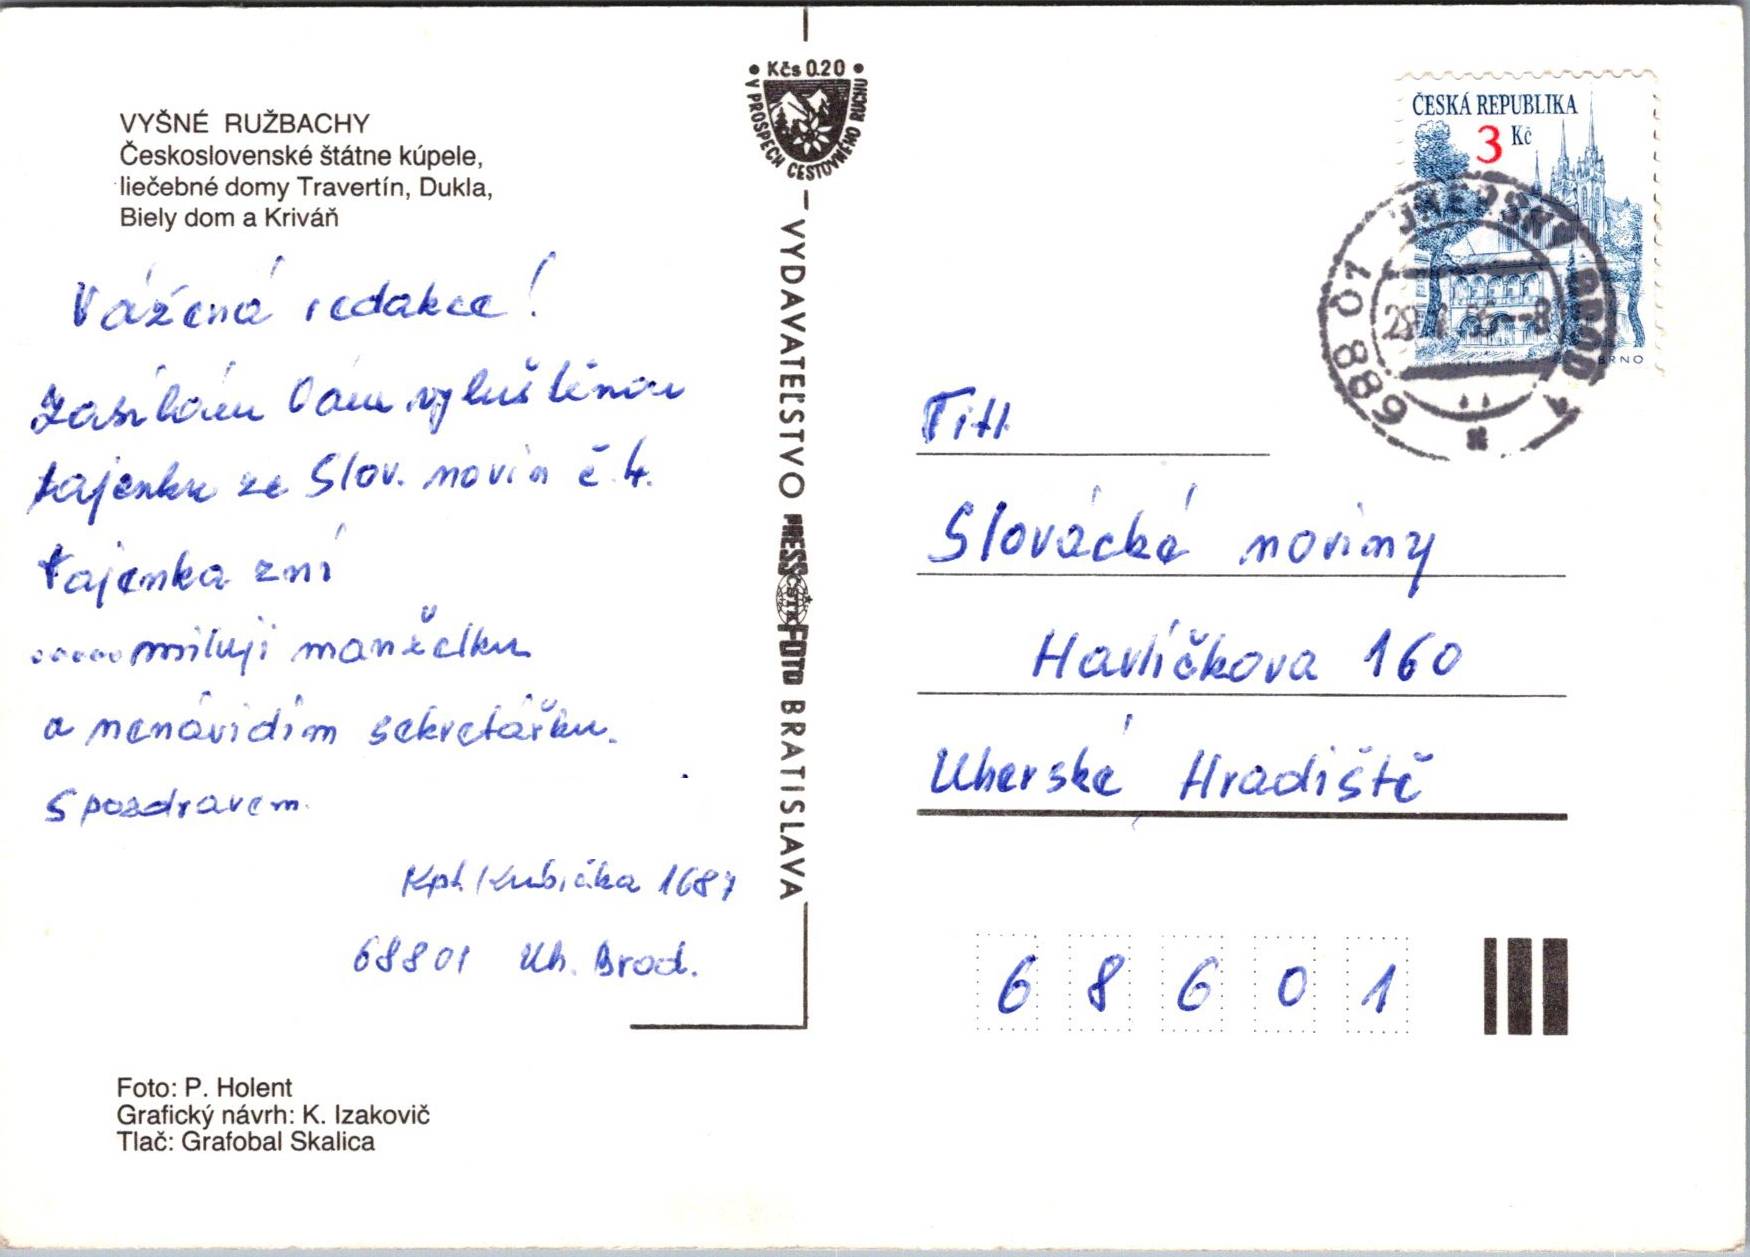 VYŠNÉ RUŽBACHY
Československé štátne kúpele,
liečebné domy Travertín, Dukla,
Biely dom a Kriváň
Vážená redakce!
Zasílám Vám vyluštěnou
tajenku ze Slov. novin č 4.
tajenka zní
.....miluji manželku
a nenávidím sekretářku.
S pozdravem.
Kpt. Kubíčka 1687
68801 Uh. Brod.
Foto: P. Holent
Grafický návrh: K. Izakovič
Tlač: Grafobal Skalica
• Kčs 0.20 •
V PROSPECH CESTOVNÉHO RUCHU
VYDAVATEĽSTVO PRESSFOTO BRATISLAVA
ČSTK
ČESKÁ REPUBLIKA
3 Kč
BRNO
UHERSKÝ BROD 1
688 01
Titl
Slovácké noviny
Havlíčkova 160
Uherské Hradiště
68601